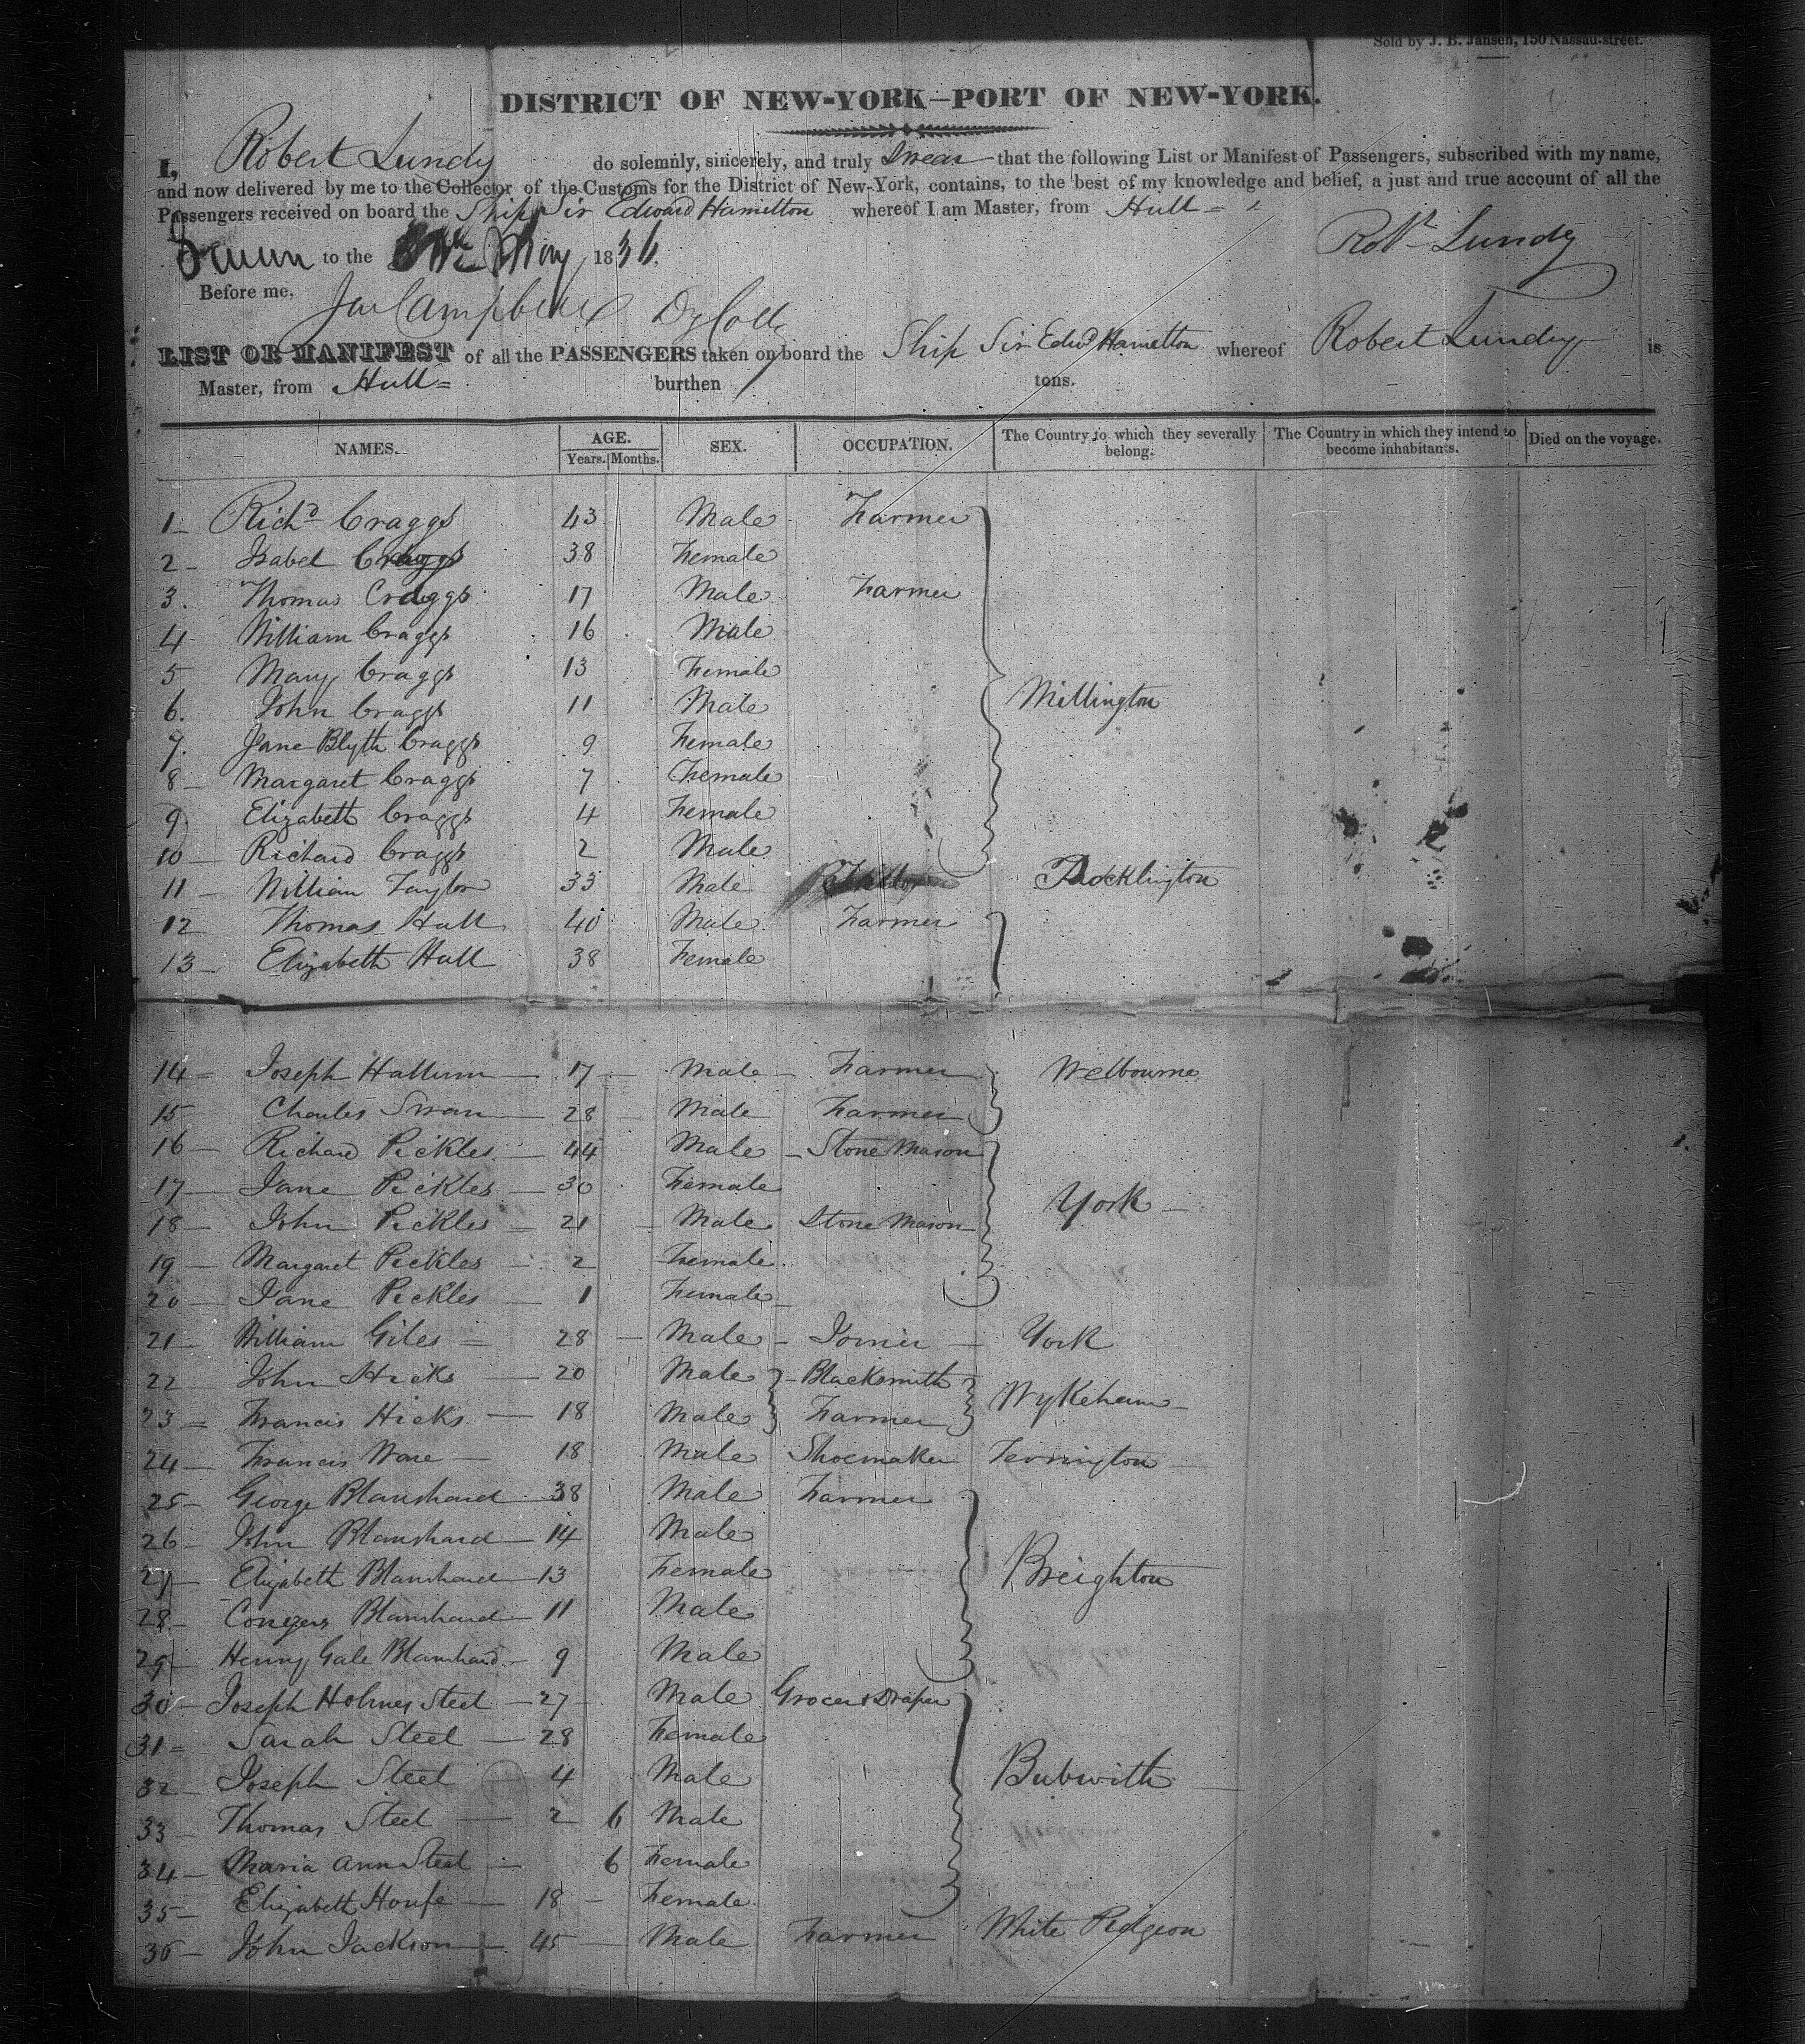 Sold by J. B. Jansen, 150 Nassau-street.
DISTRICT OF NEW-YORK—PORT OF NEW-YORK.
I, Robert Lundy do solemnly, sincerely, and truly Swear that the following List or Manifest of Passengers, subscribed with my name,
and now delivered by me to the Collector of the Customs for the District of New-York, contains, to the best of my knowledge and belief, a just and true account of all the
Passengers received on board the Ship Sir Edward Hamilton whereof I am Master, from Hull
Sworn to the May 1836. Robt Lundy
Before me,
Campbell Dy Coll
LIST OR MANIFEST of all the PASSENGERS taken on board the Ship Sir Edwd Hamilton whereof Robert Lundy is
Master, from Hull burthen tons.
NAMES. AGE. Years. Months. SEX. OCCUPATION. The Country to which they severally belong. The Country in which they intend to become inhabitants. Died on the voyage.
1 Richd Craggs 43 Male Farmer
2 Isabel Craggs 38 Female
3. Thomas Craggs 17 Male Farmer
4 William Craggs 16 Male
5 Mary Craggs 13 Female
6. John Craggs 11 Male Millington
7. Jane Blyth Craggs 9 Female
8 Margaret Craggs 7 Female
9 Elizabeth Craggs 4 Female
10 Richard Craggs 2 Male
11 William Taylor 33 Male Pocklington
12 Thomas Hall 40 Male Farmer
13 Elizabeth Hall 38 Female
14 Joseph Hallum 17 Male Farmer Welbourne
15 Charles Swan 28 Male Farmer
16 Richard Pickles 44 Male Stone Mason
17 Jane Pickles 30 Female York
18 John Pickles 21 Male Stone Mason
19 Margaret Pickles 2 Female
20 Jane Pickles 1 Female
21 William Giles 28 Male Joiner York
22 John Hicks 20 Male Blacksmith Wykeham
23 Francis Hicks 18 Male Farmer
24 Francis Ware 18 Male Shoemaker Terrington
25 George Blanshard 38 Male Farmer
26 John Blanshard 14 Male
27 Elizabeth Blanshard 13 Female Breighton
28 Conyers Blanshard 11 Male
29 Henry Gale Blanshard 9 Male
30 Joseph Holmes Steel 27 Male Grocer & Draper
31 Sarah Steel 28 Female
32 Joseph Steel 4 Male Bubwith
33 Thomas Steel 2 6 Male
34 Maria Ann Steel 6 Female
35 Elizabeth Houfe 18 Female
36 John Jackson 45 Male Farmer White Pidgeon